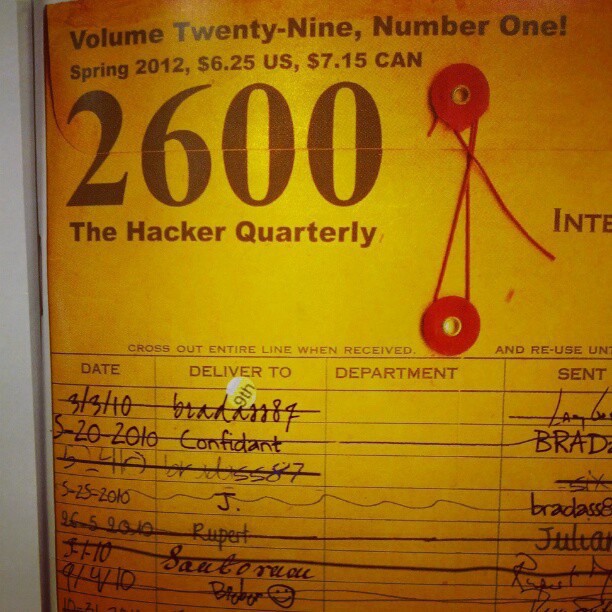 Volume Twenty-Nine, Number One!
Spring 2012, $6.25 US, $7.15 CAN
2600
The Hacker Quarterly
INTE
CROSS OUT ENTIRE LINE WHEN RECEIVED. AND RE-USE UNT
DATE DELIVER TO DEPARTMENT SENT
9th
3/3/10 bradass87
5-20-2010 Confidant BRAD
bradass87
5-25-2010 J. bradass8
26-5-2010 Rupert Julian
Santorum Rupert
9/4/10